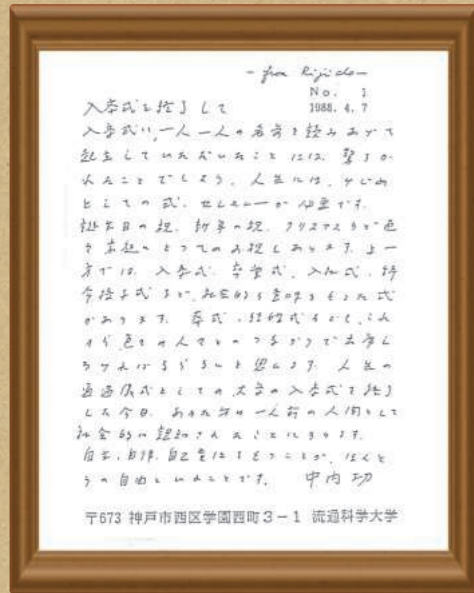 - from Rijicho -
No. 1
1988. 4. 7
入学式を終了して
入学式に、一人一人の名前を読みあげて
起立していただいたことには、驚ろか
れたことでしょう。人生には、けじめ
としての式、セレモニーが必要です。
誕生日の祝、新年の祝、クリスマスなど色
々 とってのお祝しあります。又一
方では、入学式、卒業式、入社式、
など、社会的な意味をもった式
があります。葬式、結婚式なども、これ
から色々の人々とのつながりで出席し
なければならないと思います。人生の
通過儀式としての大学の入学式を終了
した今日、あなた方は一人前の人間として
社会的に認知されたことになります。
自立、自律、自己責任をもつことが、ほんと
うの自由ということです。 中内㓛
〒673 神戸市西区学園西町3-1 流通科学大学